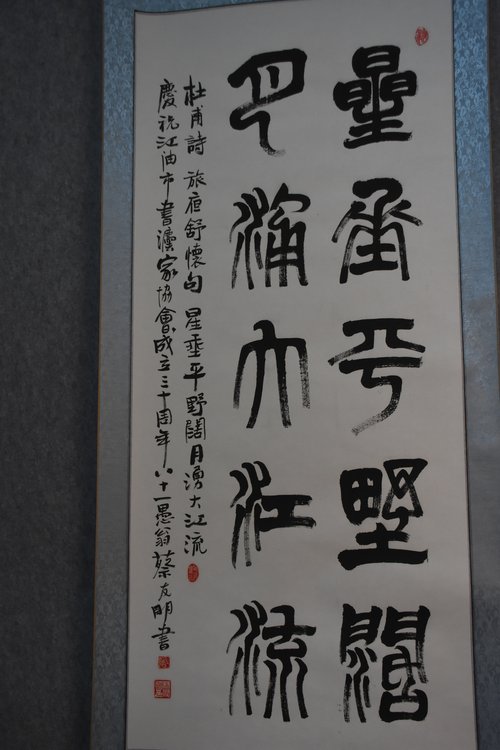 星垂平野闊
月涌大江流
杜甫詩 旅夜舒懷句 星垂平野闊月湧大江流
慶祝江油市書瀆家協會成立三十周年八十一愚翁蔡友明書